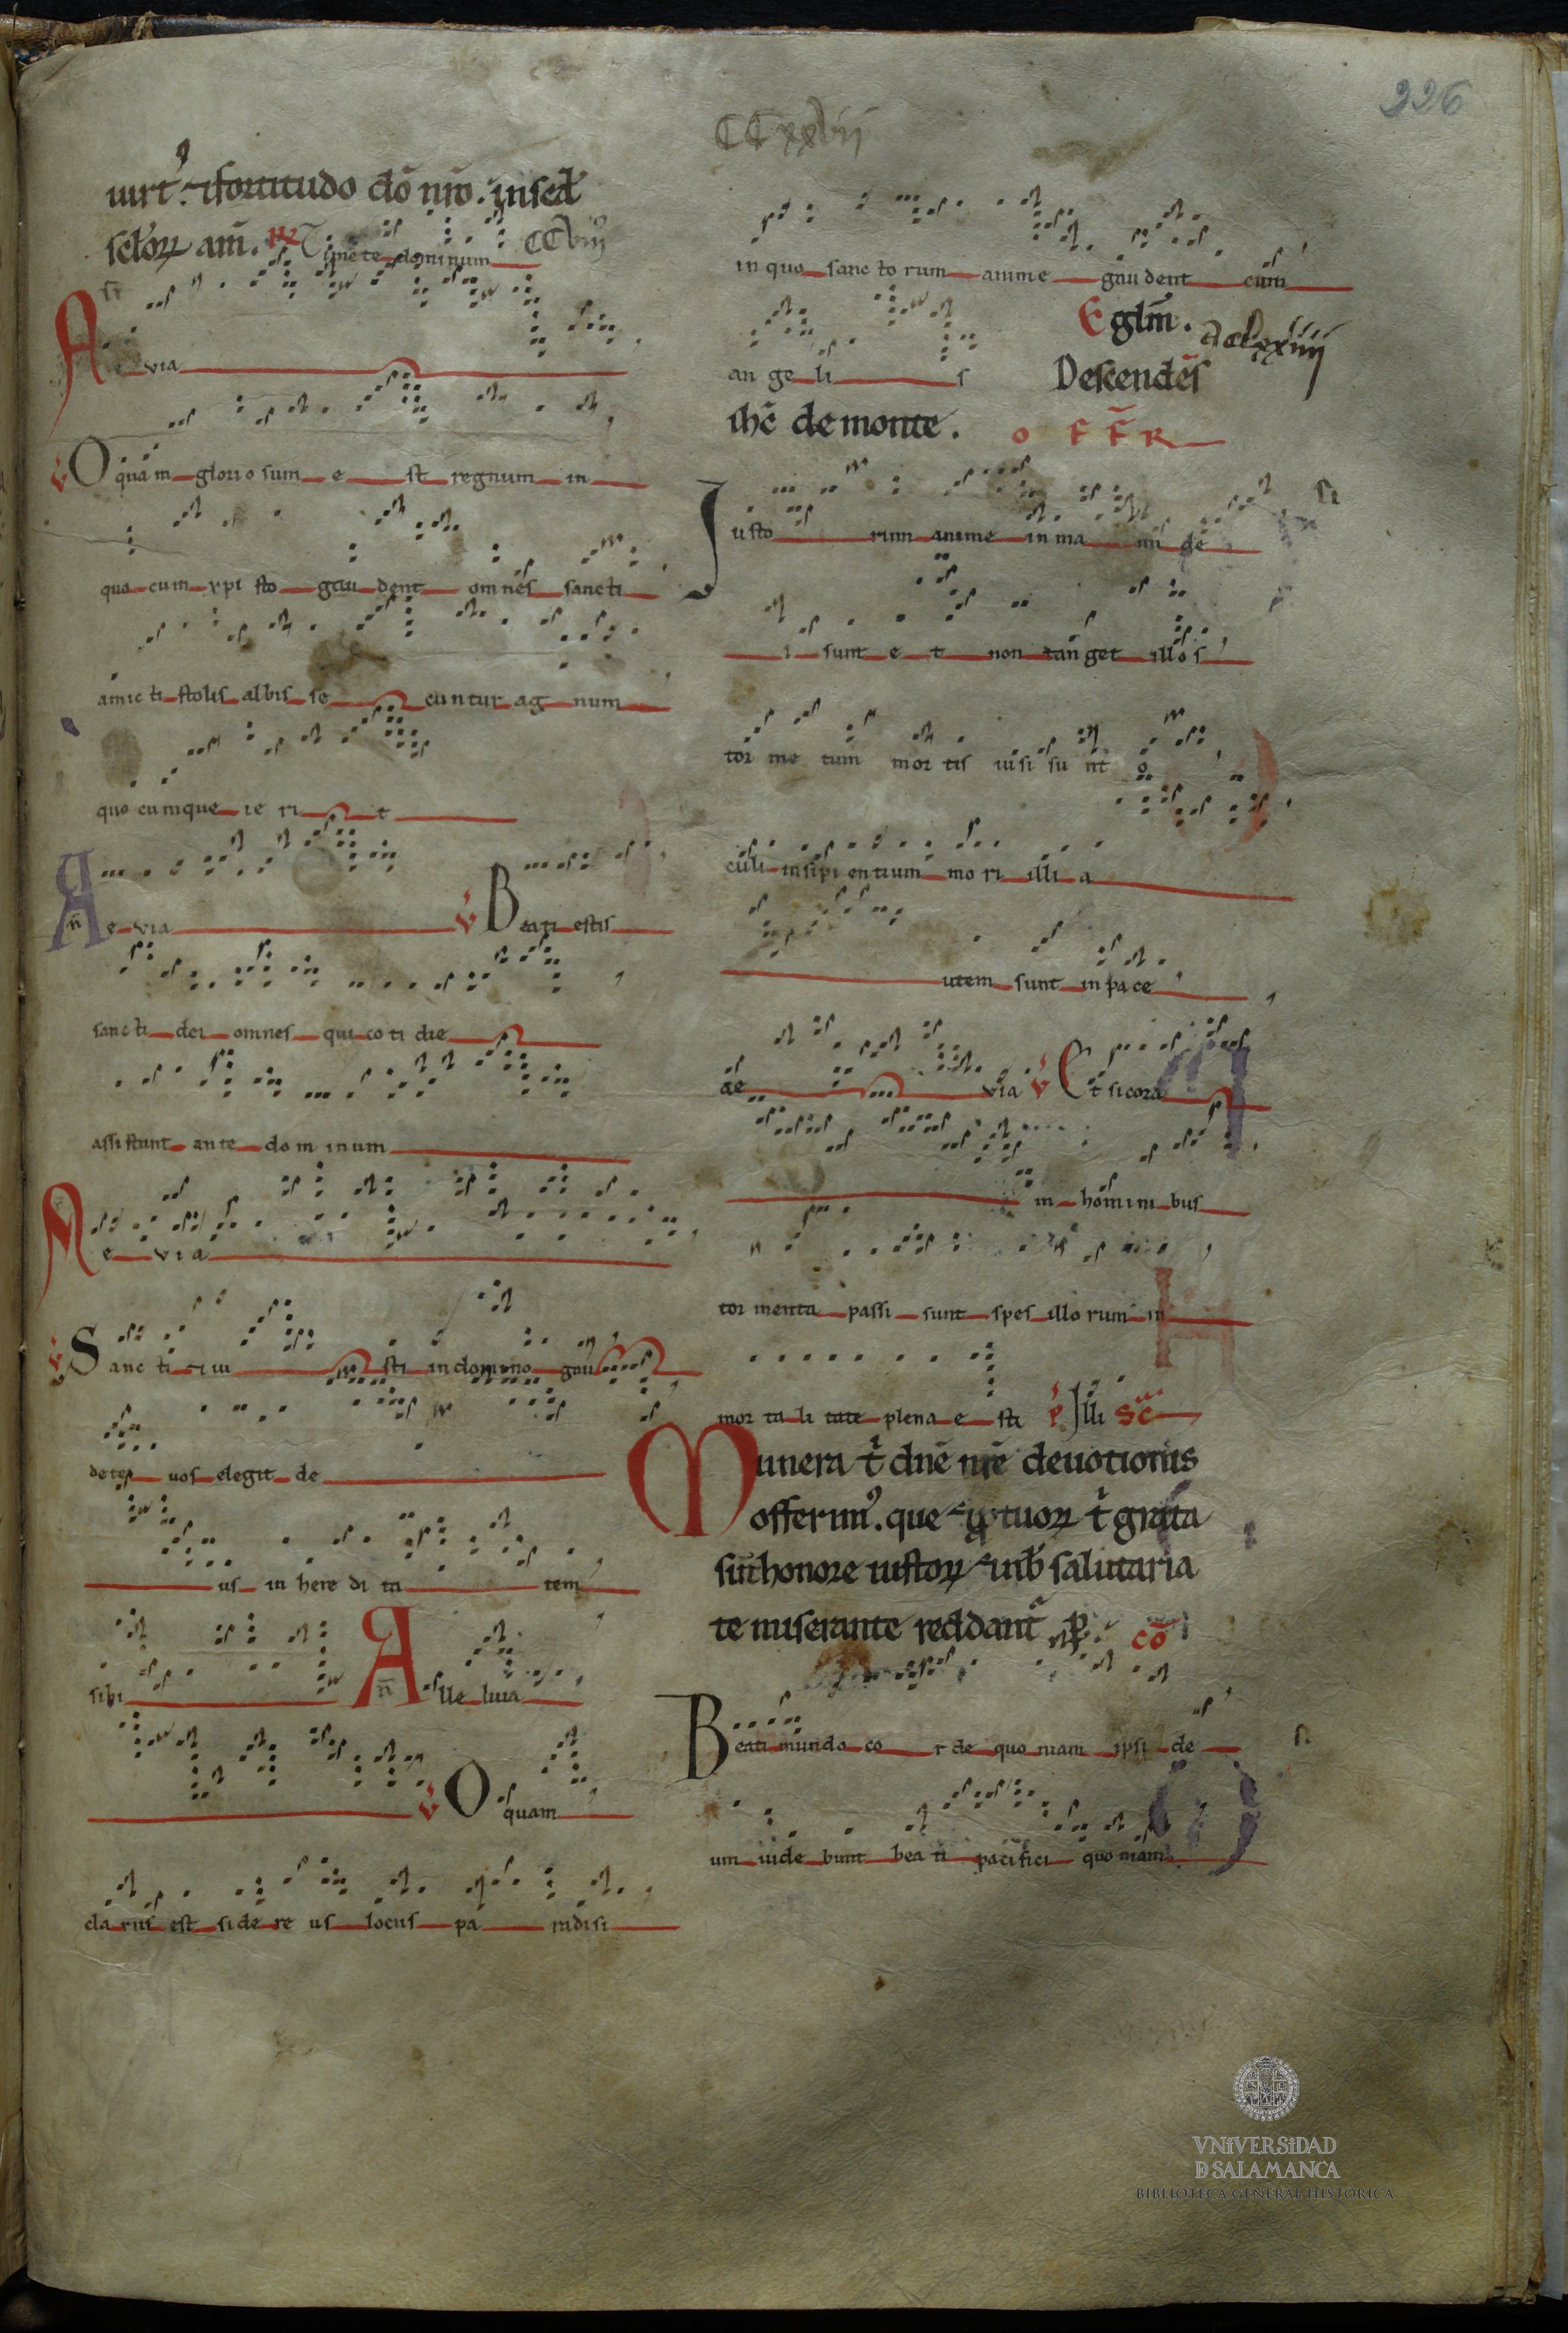 226
CCxxvii
uirt᷒. ⁊ fortitudo dō nr̄o. in sed̄
sctōꝝ am̄. ℞ Timete dominum CCviii
A e via
℣ O quam glorio sum e st regnum in
quo cum xpi sto gau dent omnes sancti
amic ti stolis albis se cuntur ag num
quo cumque ie ri t
A e via ℣ Beati estis
sanc ti dei omnes qui co ti die
assistunt ante dom inum
A e via
℣ Sanc ti ⁊ iu sti in domino gau
dete vos elegit de
us in here di ta tem
sibi Alle luia
℣ O quam
cla rus est side re us locus pa radisi
in quo sanc to rum anime gau dent cum
an ge li s E͂ glm̄.
Descendēs
ihc̄ de monte. O F F R
Iusto rum anime in ma nu de
i sunt e t non tan get illos
tor me tum mor tis uisi su nt o
culi insipi entium mo ri illi a
utem sunt in pa ce
ae via ℣ Et si cora
in homini bus
tor menta passi sunt spes illo rum in
mor ta li tate plena e st Illi Sc̄
Munera t̄ dn̄e nr̄e deuotionis
offerim᷒. que ⁊ ꝓ tuoꝝ t̄ grata
sūt honore iustoꝝ ⁊ nob̄ salutaria
te miserante reddant᷑. ꝑ. cō
Beati mundo co r de quo niam ipsi de
um uide bunt bea ti pacifici quo niam
VNiVERSiDAD
D SALAMANCA
BIBLIOTECA GENERAL HISTÓRICA